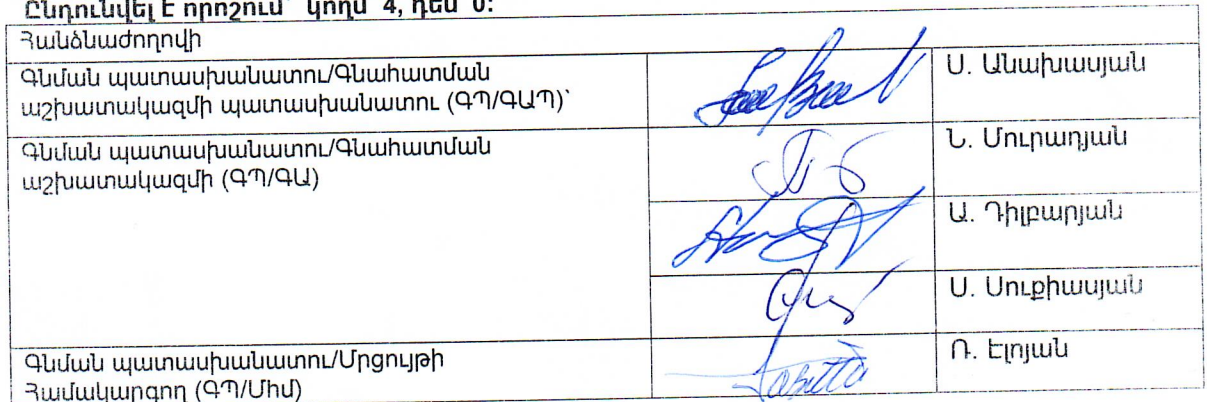 Ընդունվել է որոշում՝ կողմ՝ 4, դեմ՝ 0:
Հանձնաժողովի
Գնման պատասխանատու/Գնահատման
աշխատակազմի պատասխանատու (ԳՊ/ԳԱՊ)՝
Ս. Անախասյան
Գնման պատասխանատու/Գնահատման
աշխատակազմի (ԳՊ/ԳԱ)
Ն. Մուրադյան
Ա. Դիլբարյան
Ս. Սուքիասյան
Գնման պատասխանատու/Մրցույթի
Համակարգող (ԳՊ/ՄհՄ)
Ռ. Էլոյան